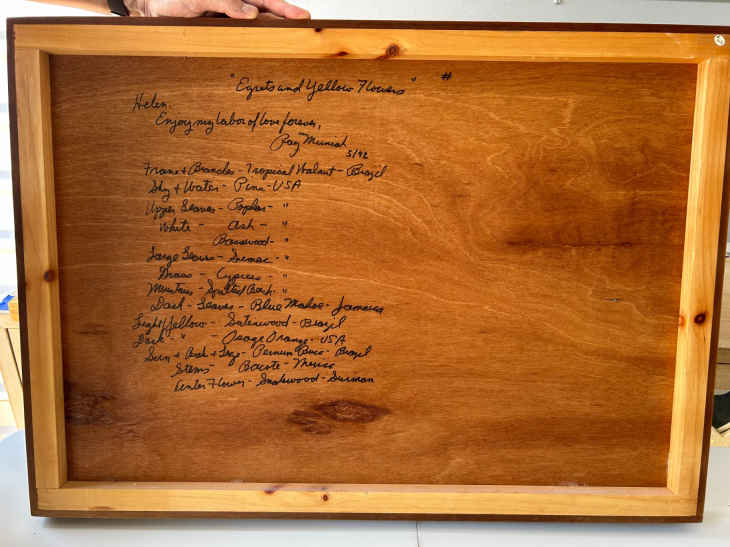 "Egrets and Yellow Flowers" #
Helen.
Enjoy my labor of love forever,
Ray
5/92
Frame + Branches - Tropical Walnut - Brazil
Sky + Water - - USA
Upper Leaves - Poplar - "
White - Ash - "
Basswood - "
Large - Sumac - "
- Cypress - "
Mountains - - "
Dark - Leaves - Blue Mahoe - Jamaica
Light Yellow - Satinwood - Brazil
Dark - " - Osage Orange - USA
Sun + + - Brazil
Stems - Bocote - Mexico
Center Flower - Snakewood -